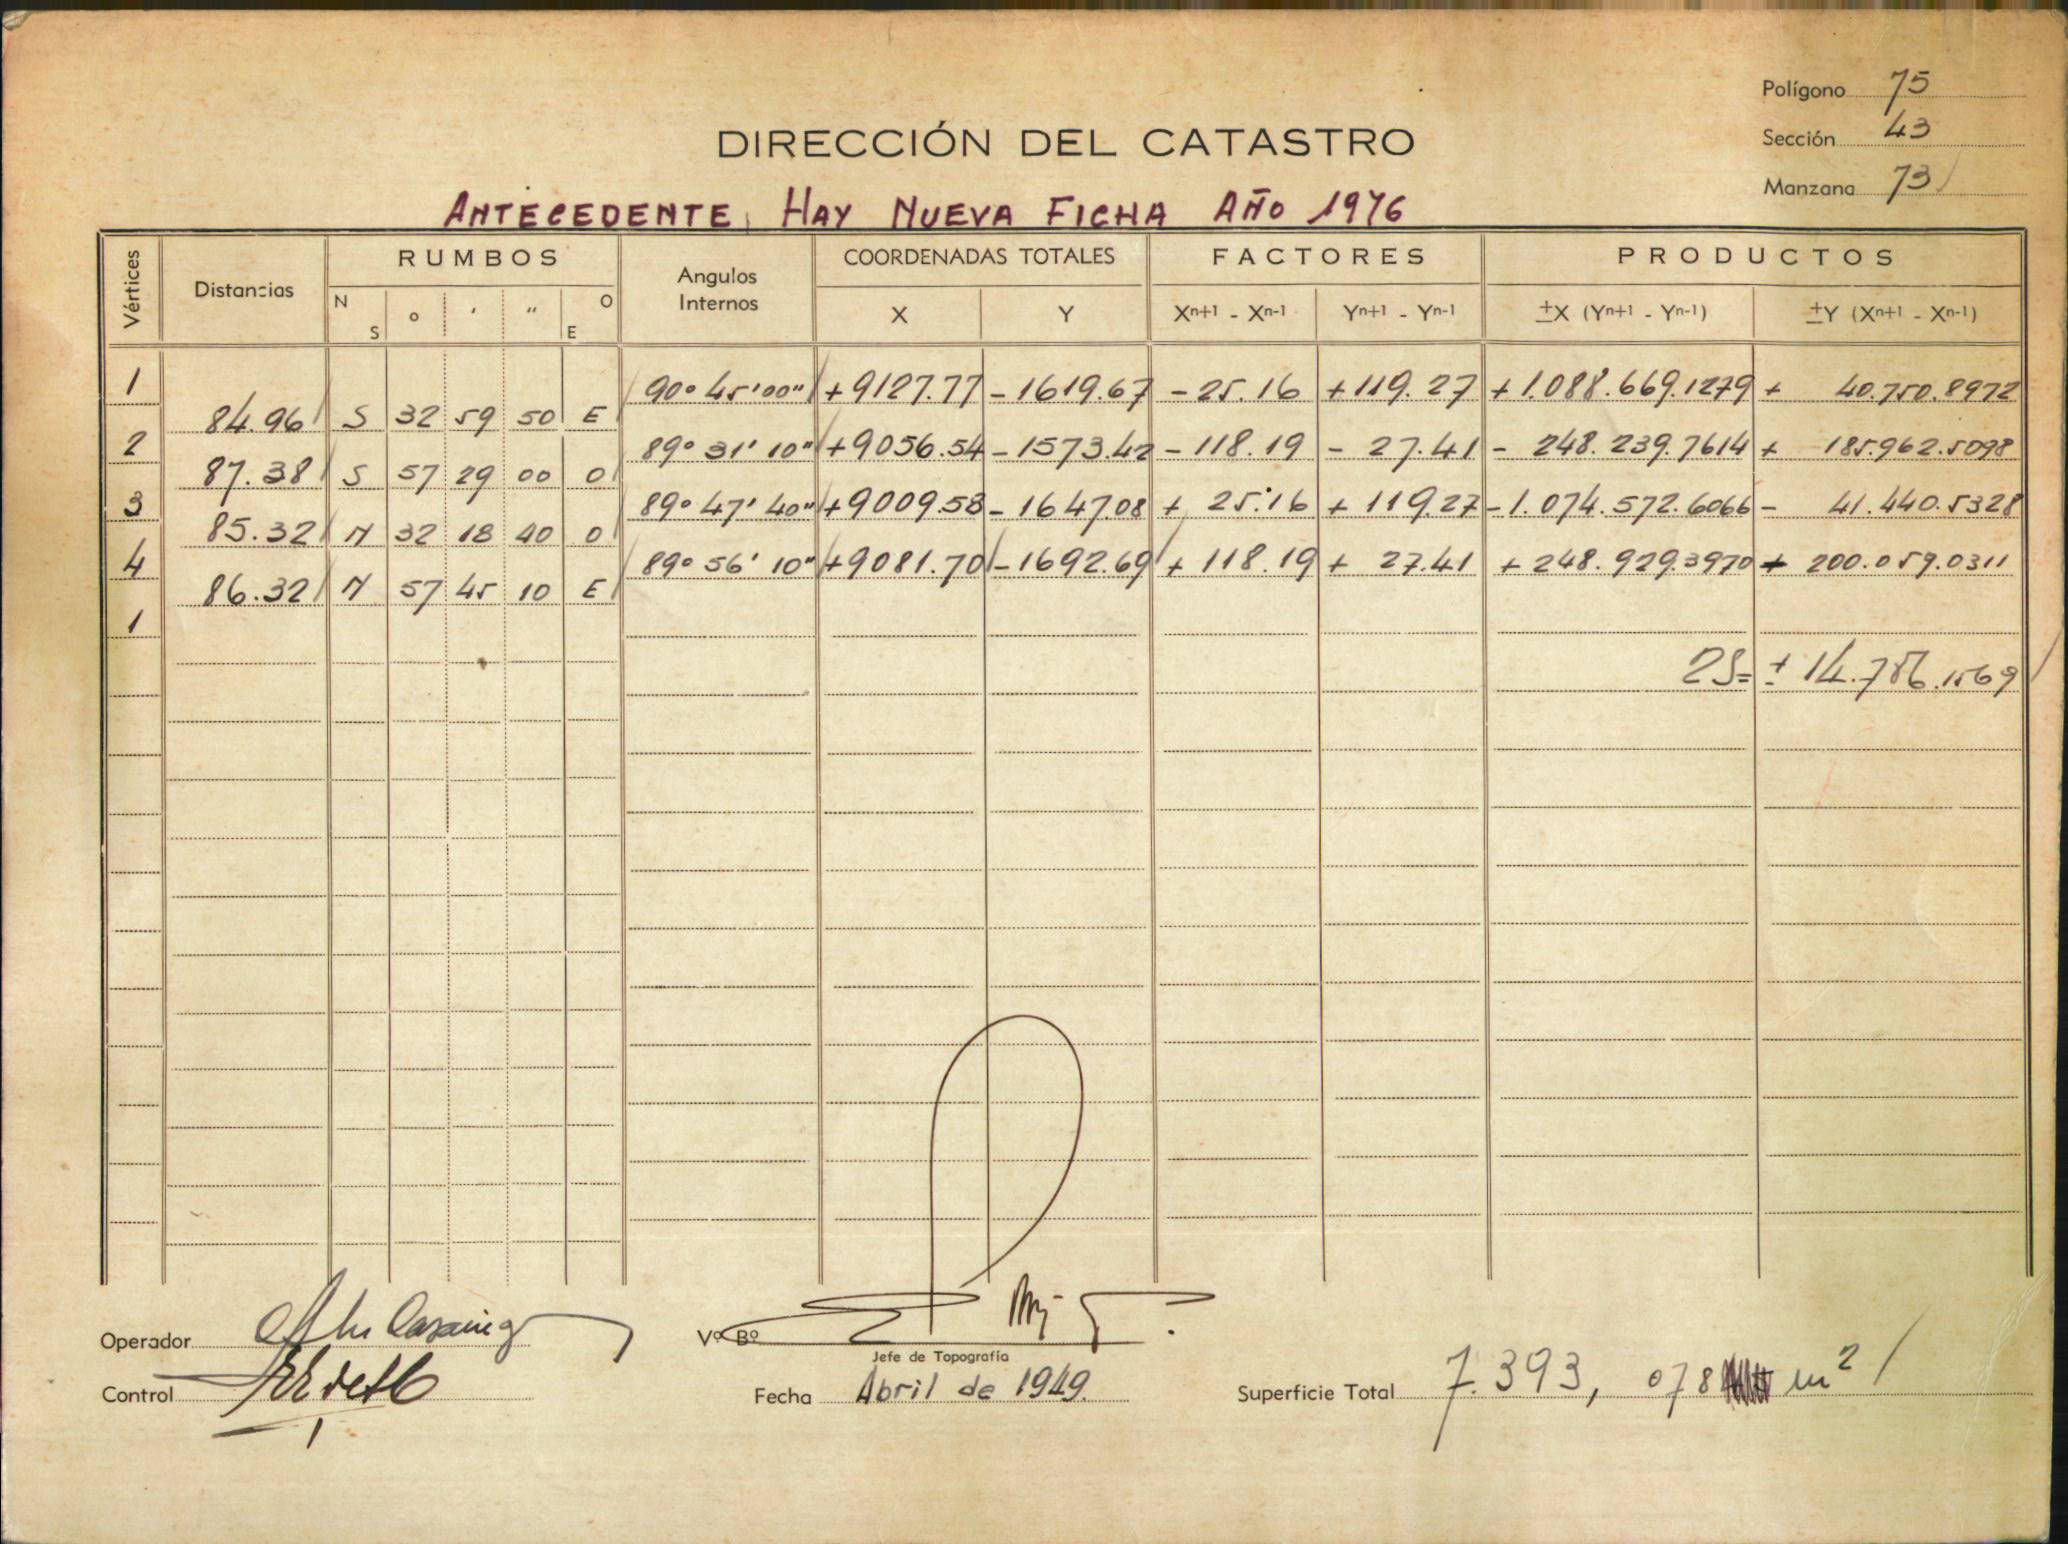 Polígono 75
DIRECCIÓN DEL CATASTRO
Sección 43
Manzana 73
ANTECEDENTE, HAY NUEVA FICHA AÑO 1976
Vértices Distancias RUMBOS Angulos Internos COORDENADAS TOTALES FACTORES PRODUCTOS
N S o ' " O E X Y Xn+1 - Xn-1 Yn+1 - Yn-1 ±X (Yn+1 - Yn-1) ±Y (Xn+1 - Xn-1)
1 90° 45' 00" +9127.77 -1619.67 -25.16 +119.27 +1.088.669.1279 + 40.750.8972
84.96 S 32 59 50 E
2 89° 31' 10" +9056.54 -1573.42 -118.19 - 27.41 - 248.239.7614 + 185.962.5098
87.38 S 57 29 00 O
3 89° 47' 40" +9009.58 -1647.08 + 25.16 + 119.27 -1.074.572.6066 - 41.440.5328
85.32 N 32 18 40 O
4 89° 56' 10" +9081.70 -1692.69 + 118.19 + 27.41 + 248.929.3970 + 200.059.0311
86.32 N 57 45 10 E
1
2S= ± 14.786.1569
Operador
Vº Bº
Jefe de Topografía
Control
Fecha Abril de 1949.
Superficie Total 7.393, 078 m2